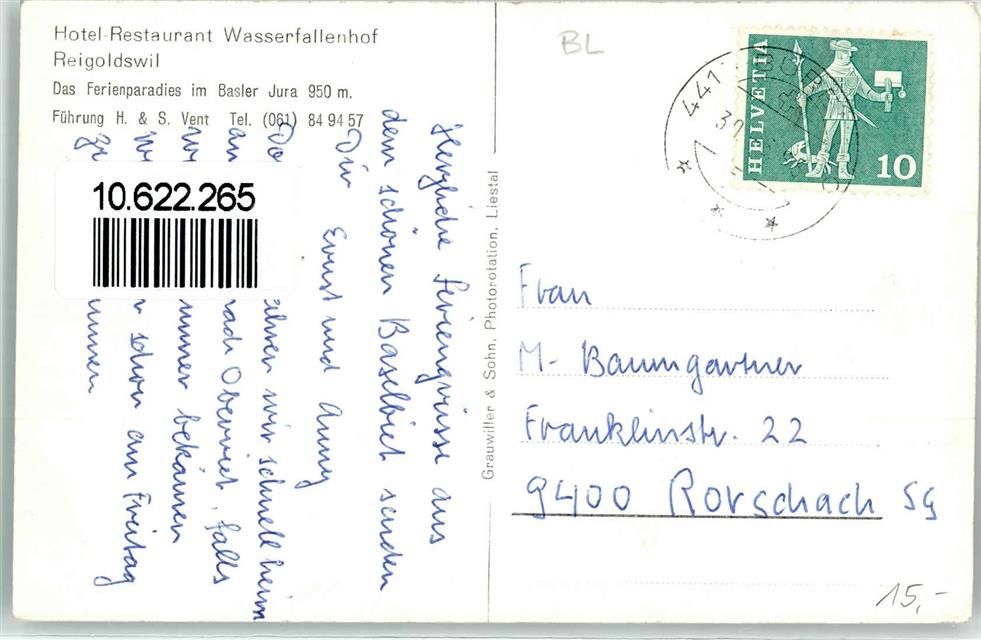 Hotel-Restaurant Wasserfallenhof
Reigoldswil
Das Ferienparadies im Basler Jura 950 m.
Führung H. & S. Vent Tel. (061) 84 94 57
10.622.265
Herzliche Feriengrüsse aus
dem schönen Baselbiet senden
Dir Ernst und Anny
Do wir schnell heim
nach Oberriet, falls
bekämen
schon am Freitag
Grauwiller & Sohn, Photorotation, Liestal
BL
441
HELVETIA
10
Frau
M. Baumgartner
Franklinstr. 22
9400 Rorschach SG
15,-